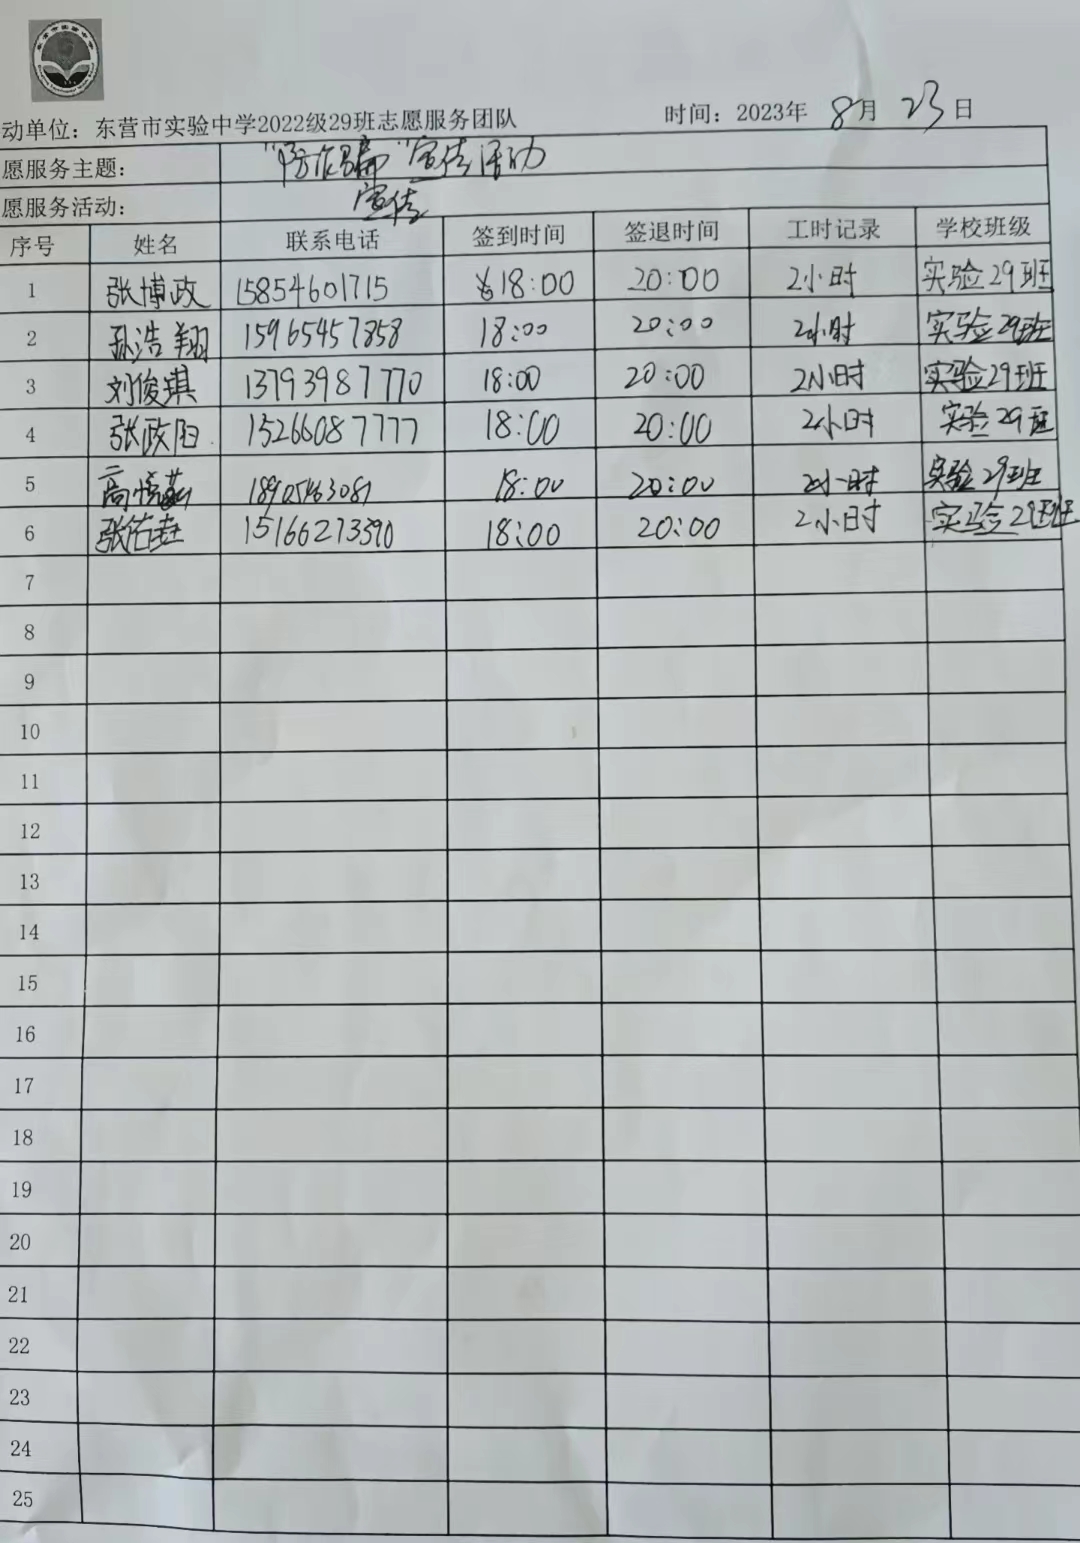 动单位：东营市实验中学2022级29班志愿服务团队 时间：2023年 8月 23日
愿服务主题： "防诈骗"宣传活动
愿服务活动： 宣传
序号 姓名 联系电话 签到时间 签退时间 工时记录 学校班级
1 张博政 15854601715 18:00 20:00 2小时 实验29班
2 孙浩翔 15965457858 18:00 20:00 2小时 实验29班
3 刘俊琪 13793987770 18:00 20:00 2小时 实验29班
4 张政阳 15266087777 18:00 20:00 2小时 实验29班
5 高悦 18:00 20:00 2小时 实验29班
6 张佑 15166273390 18:00 20:00 2小时 实验29班
7
8
9
10
11
12
13
14
15
16
17
18
19
20
21
22
23
24
25